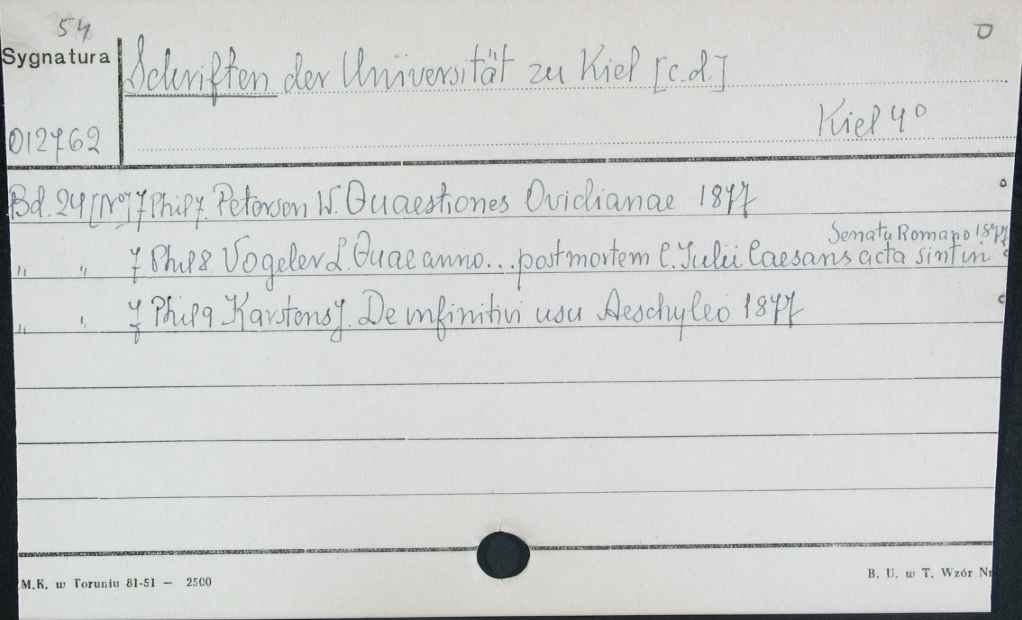 54
0
Sygnatura
Schriften der Universität zu Kiel [c.d.]
012762
Kiel 4°
Bd. 24 [Nº] 7 Phil 7. Petersen W. Quaestiones Ovidianae 1877
Senatu Romano 1877
" " 7 Phil 8 Vogeler L. Quae anno... post mortem C. Iulii Caesaris acta sint in
" " 7 Phil 9 Karstens J. De infinitivi usu Aeschyleo 1877
M.K. w Toruniu 81-51 — 2500
B. U. w T. Wzór Nr